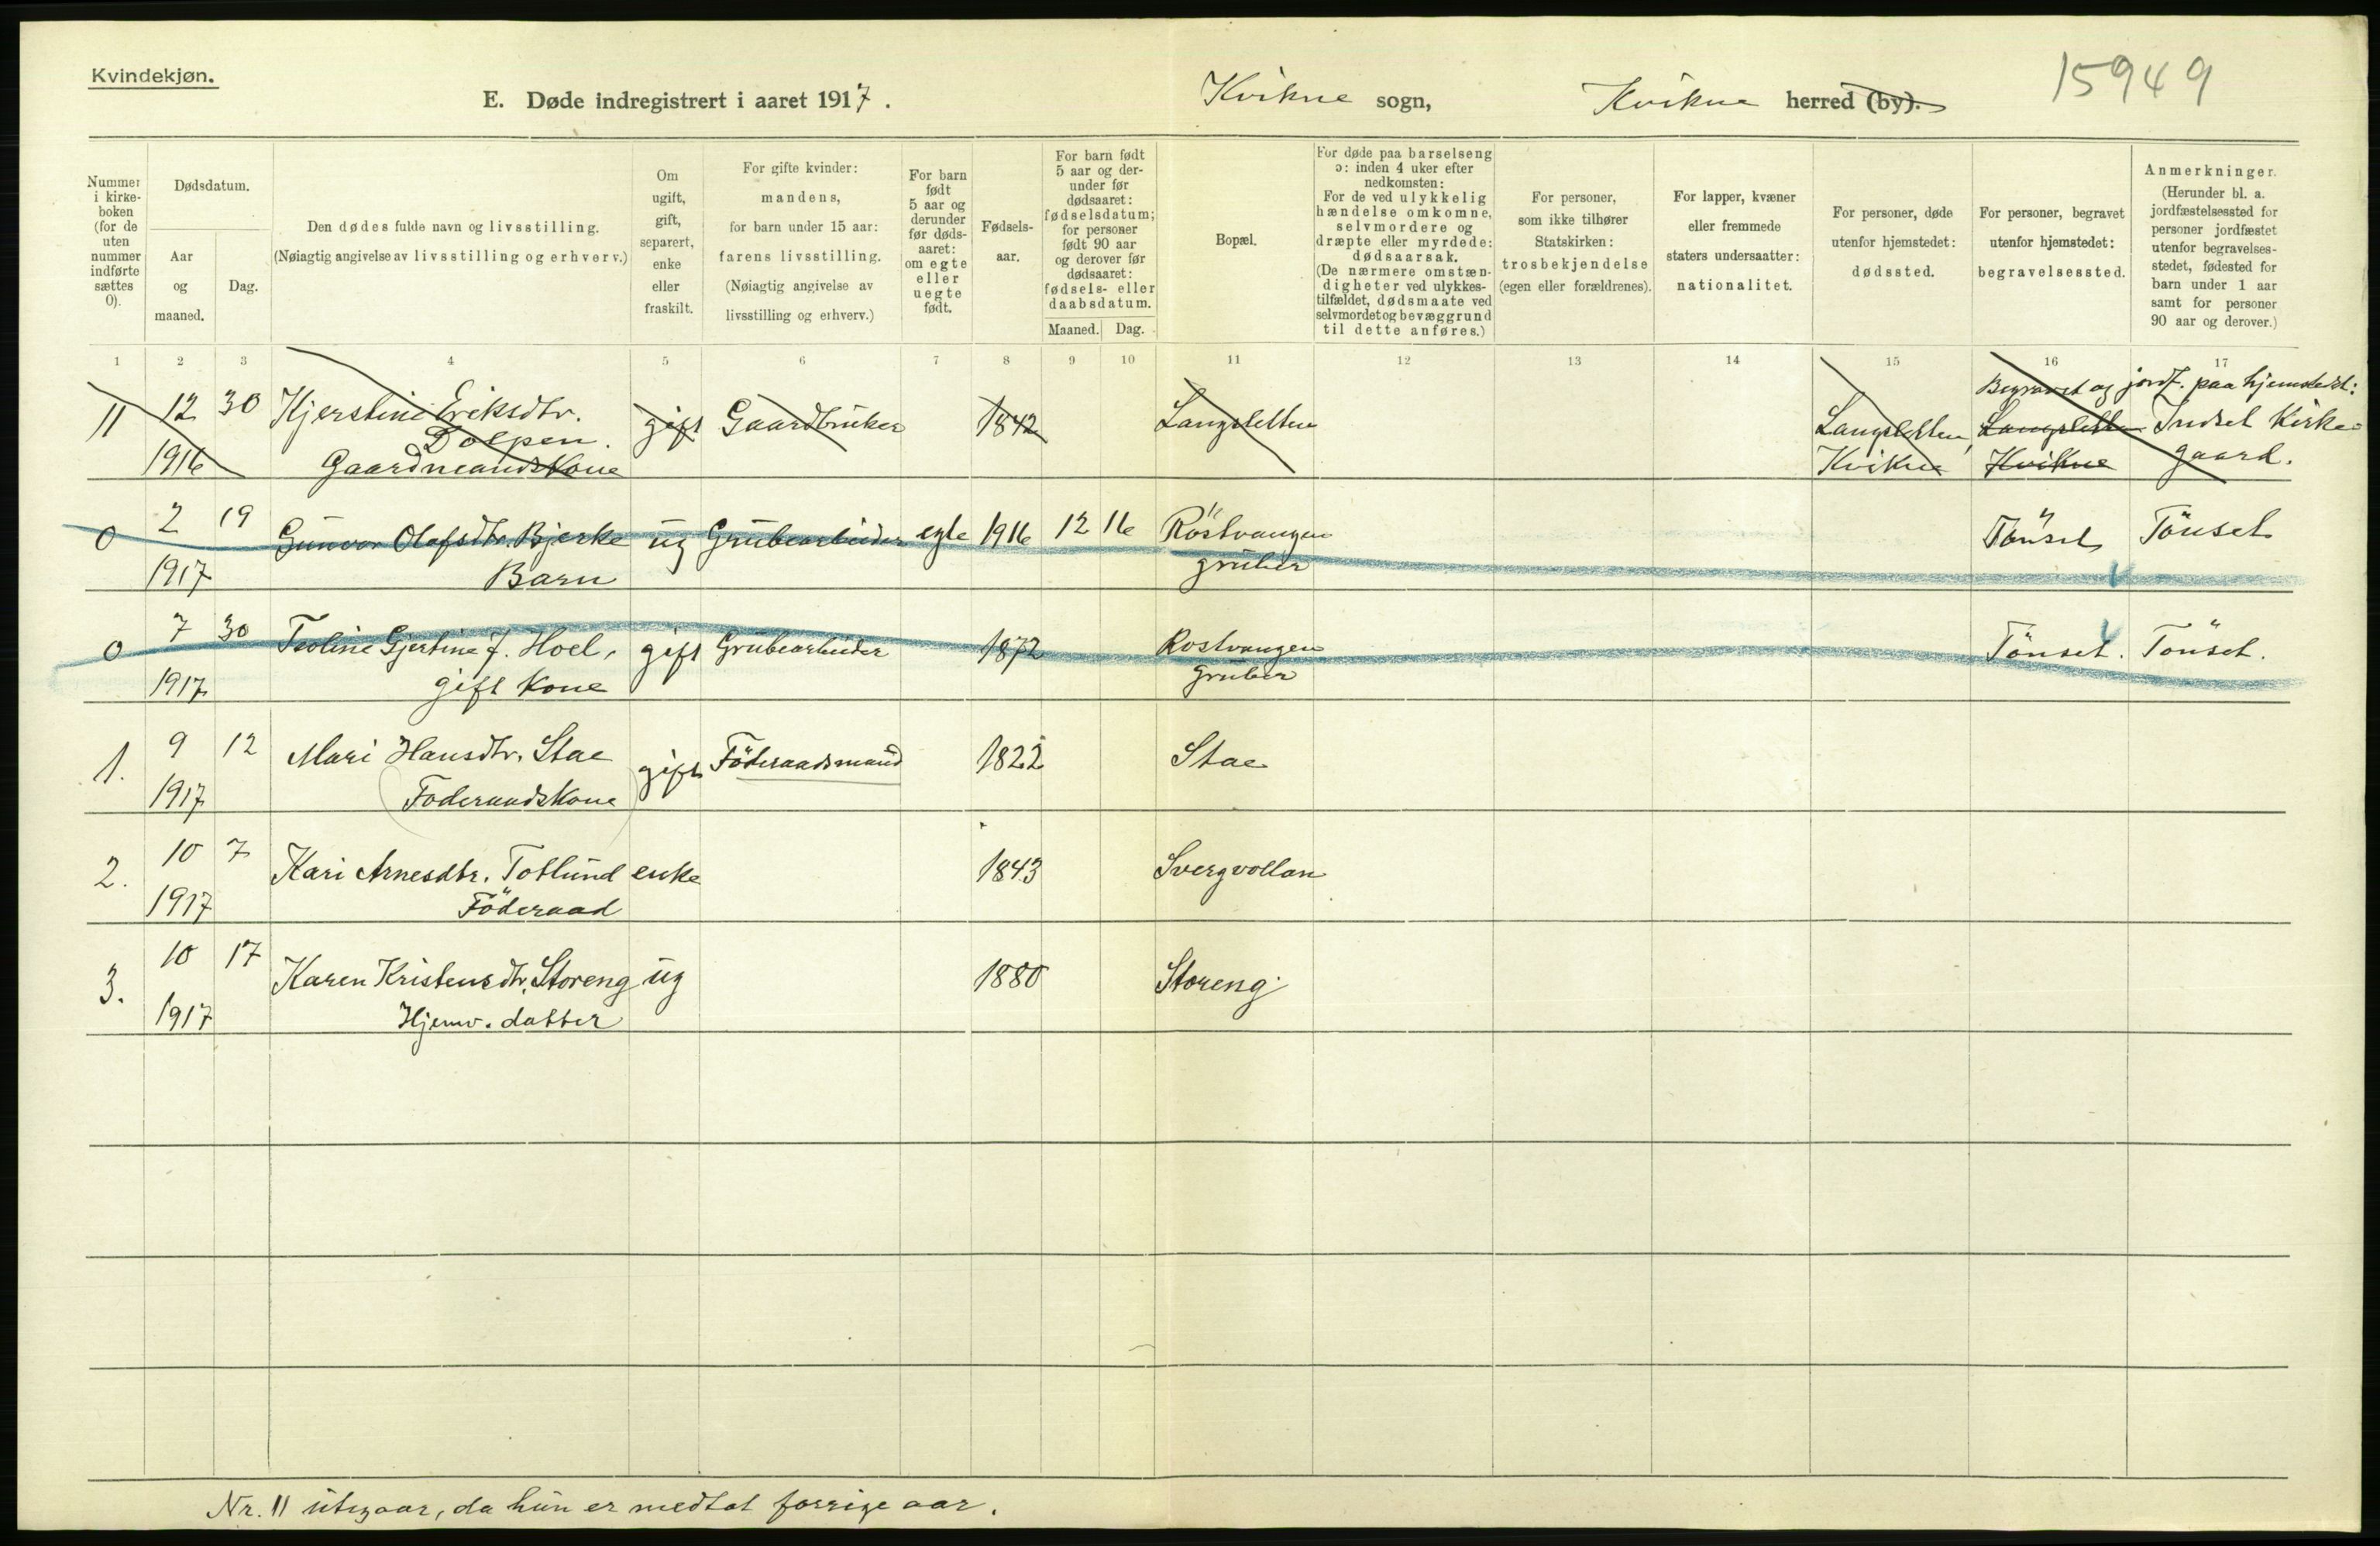 Kvindekjøn.
15949
E. Døde indregistrert i aaret 1917. Kvikne sogn, Kvikne herred (by).
Nummer i kirke-boken (for de uten nummer indførte sættes 0).
Dødsdatum.
Aar og maaned.
Dag.
Den dødes fulde navn og livsstilling.
(Nøiagtig angivelse av livsstilling og erhverv.)
Om ugift, gift, separert, enke eller fraskilt.
For gifte kvinder: mandens, for barn under 15 aar: farens livsstilling.
(Nøiagtig angivelse av livsstilling og erhverv.)
For barn født 5 aar og derunder før døds-aaret: om egte eller uegte født.
Fødsels-aar.
For barn født 5 aar og der-under før dødsaaret: fødselsdatum; for personer født 90 aar og derover før dødsaaret: fødsels- eller daabsdatum.
Maaned. Dag.
Bopæl.
For døde paa barselseng ɔ: inden 4 uker efter nedkomsten: For de ved ulykkelig hændelse omkomne, selvmordere og dræpte eller myrdede: dødsaarsak.
(De nærmere omstæn-digheter ved ulykkes-tilfældet, dødsmaate ved selvmordet og bevæggrund til dette anføres.)
For personer, som ikke tilhører Statskirken: trosbekjendelse (egen eller forældrenes).
For lapper, kvæner eller fremmede staters undersaatter: nationalitet.
For personer, døde utenfor hjemstedet: dødssted.
For personer, begravet utenfor hjemstedet: begravelsessted.
Anmerkninger.
(Herunder bl. a. jordfæstelsessted for personer jordfæstet utenfor begravelses-stedet, fødested for barn under 1 aar samt for personer 90 aar og derover.)
1 2 3 4 5 6 7 8 9 10 11 12 13 14 15 16 17
Begravet og jordf. paa hjemstedet:
11 12 30 Kjerstine Eriksdtr. gift Gaardbruker 1842 Langsletten Langsletten, Langsletten Indset Kirke-
Dolpen.
1916 Gaardmandskone Kvikne Kvikne gaard.
0 2 19 Gunvor Olafsdtr. Bjerke ug Grubearbeider egte 1916 12 16 Röstvangen Tönset Tönset
1917 Barn gruber
0 7 30 Teoline Gjertine f. Hoel, gift Grubearbeider 1872 Rostvangen Tönset. Tönset.
1917 gift Kone Gruber
1. 9 12 Mari Hansdtr. Stae gift Föderaadsmand 1822 Stae
1917 Foderaadskone
2. 10 7 Kari Arnesdtr. Totlund enke 1843 Svergvollan
1917 Föderaad
3. 10 17 Karen Kristensdtr. Storeng ug 1880 Storeng
1917 Hjemv. datter
Nr. 11 utgaar, da hun er medtat forrige aar.